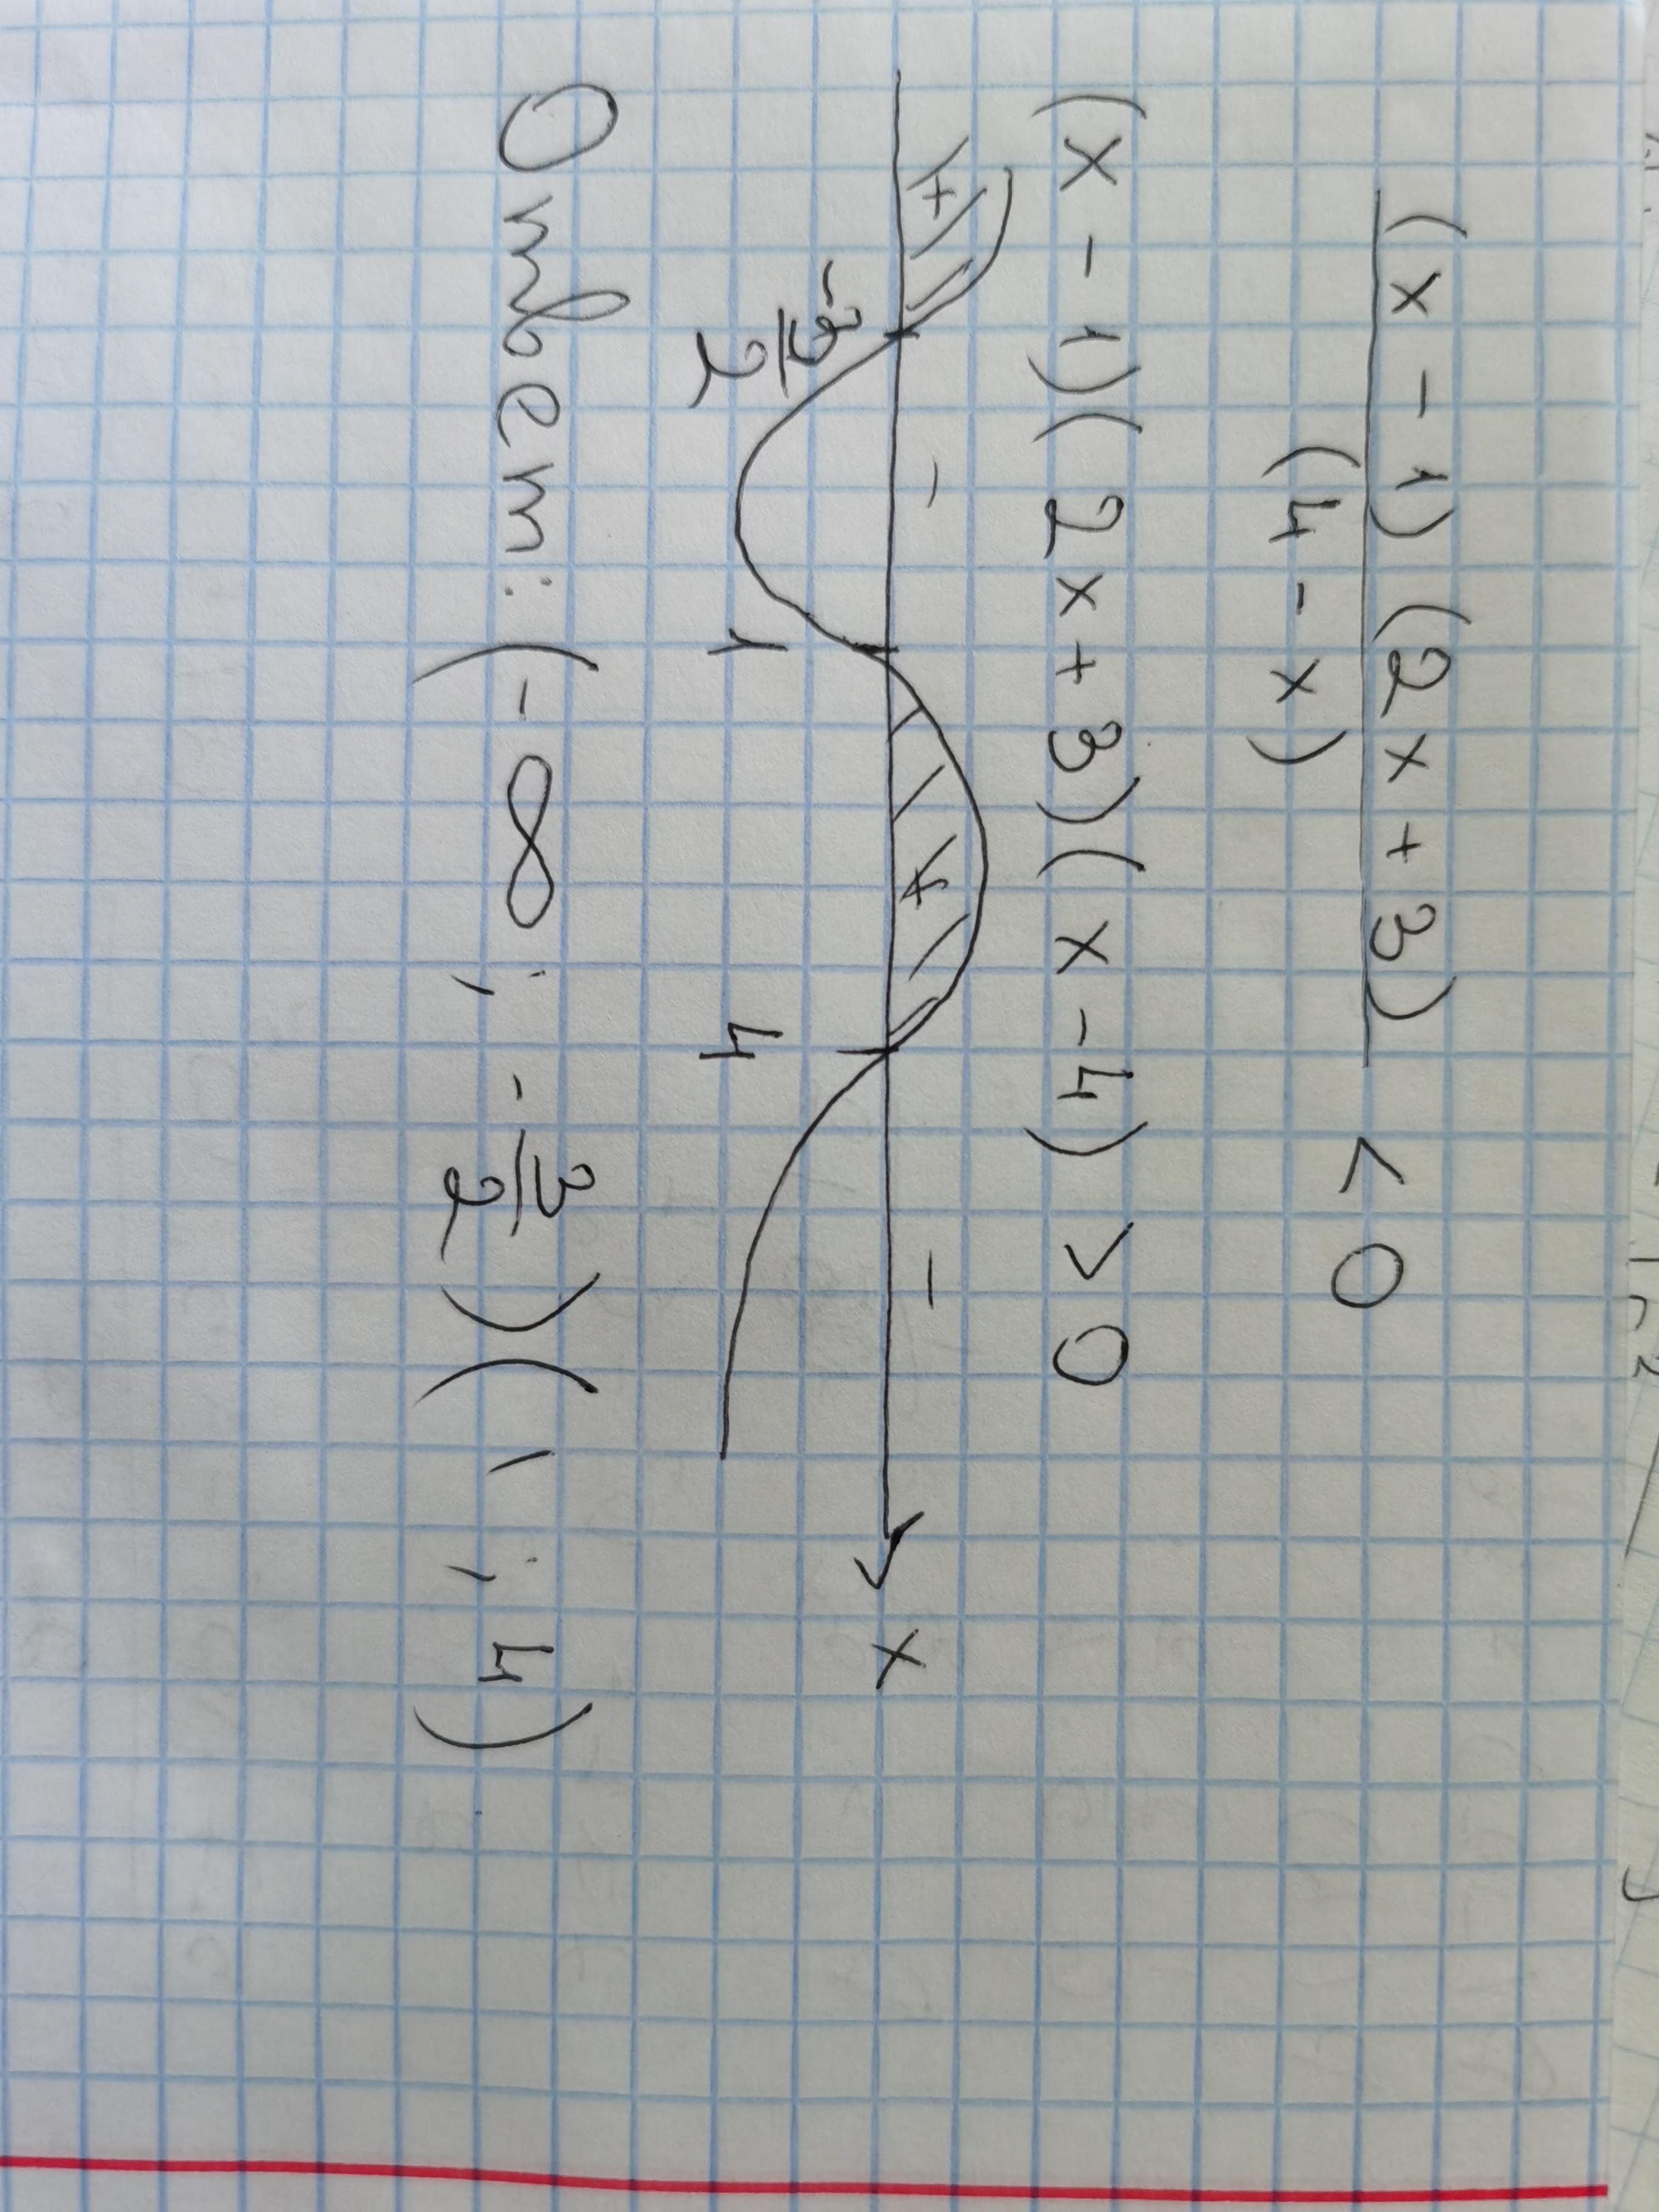 (x - 1)(2x + 3)
(4 - x) < 0
(x - 1)(2x + 3)(x - 4) > 0
+ - + - x
-3/2 1 4
Ответ: (-∞; -3/2)(1; 4)